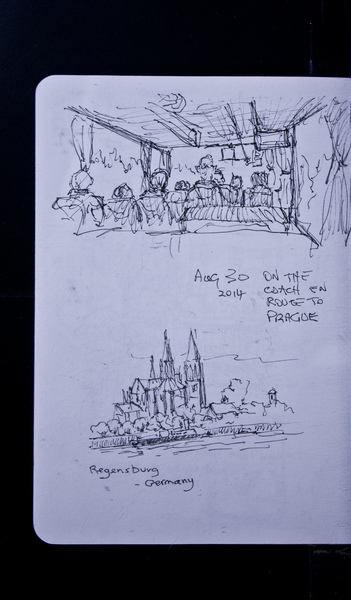 Aug 30 ON THE
2014 COACH EN
ROUTE TO
PRAGUE
Regensburg
- Germany